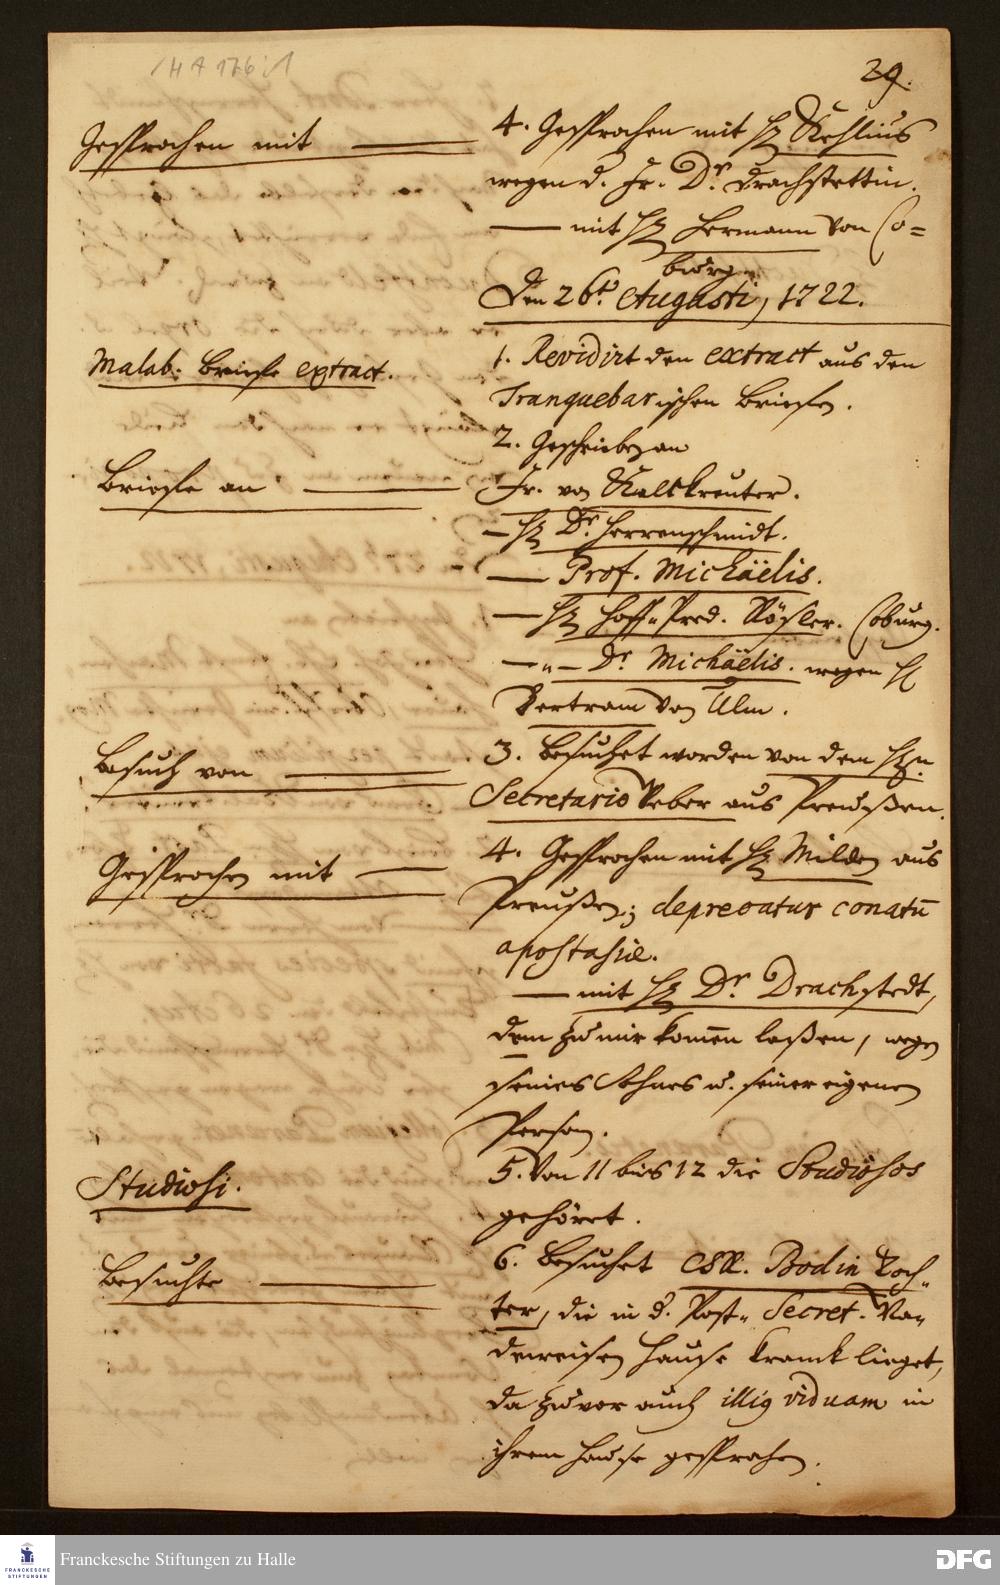 /H A 176:1
29.
Gesprochen mit
4. Gesprochen mit H. Kehlius
wegen d. Fr. Dr. Drachstettin.
— mit H. Hermann von Co=
burg.
Den 26t. Augusti, 1722.
Malab. Briefe extract.
1. Revidirt den extract aus den
Tranquebarischen Briefen.
2. Geschrieben an
Briefe an
Fr. von Kalckreuter.
— H. Dr. Herrenschmidt.
— Prof. Michäelis.
— H. Hoff-Pred. Rösler. Coburg.
— " — Dr. Michäelis. wegen H
Bertram von Ulm.
Besuch von
3. Besuchet worden von dem Hrn.
Secretario Weber aus Preußen.
Gesprochen mit
4. Gesprochen mit H. Milden aus
Preußen; deprecatur conatū
apostasiæ.
— mit H. Dr. Drachstedt,
dem zu mir kom̄en laßen, wegen
seines Sohnes u. seiner eigenen
Person.
Studiosi.
5. Von 11 bis 12 die Studiosos
gehöret.
Besuchte
6. Besuchet Bodin Toch-
ter, die in d. Post-Secret. Van
Hause kranck lieget,
da zuvor auch illig viduam in
ihrem Hause gesprochen.
FRANCKESCHE
STIFTUNGEN
Franckesche Stiftungen zu Halle
DFG